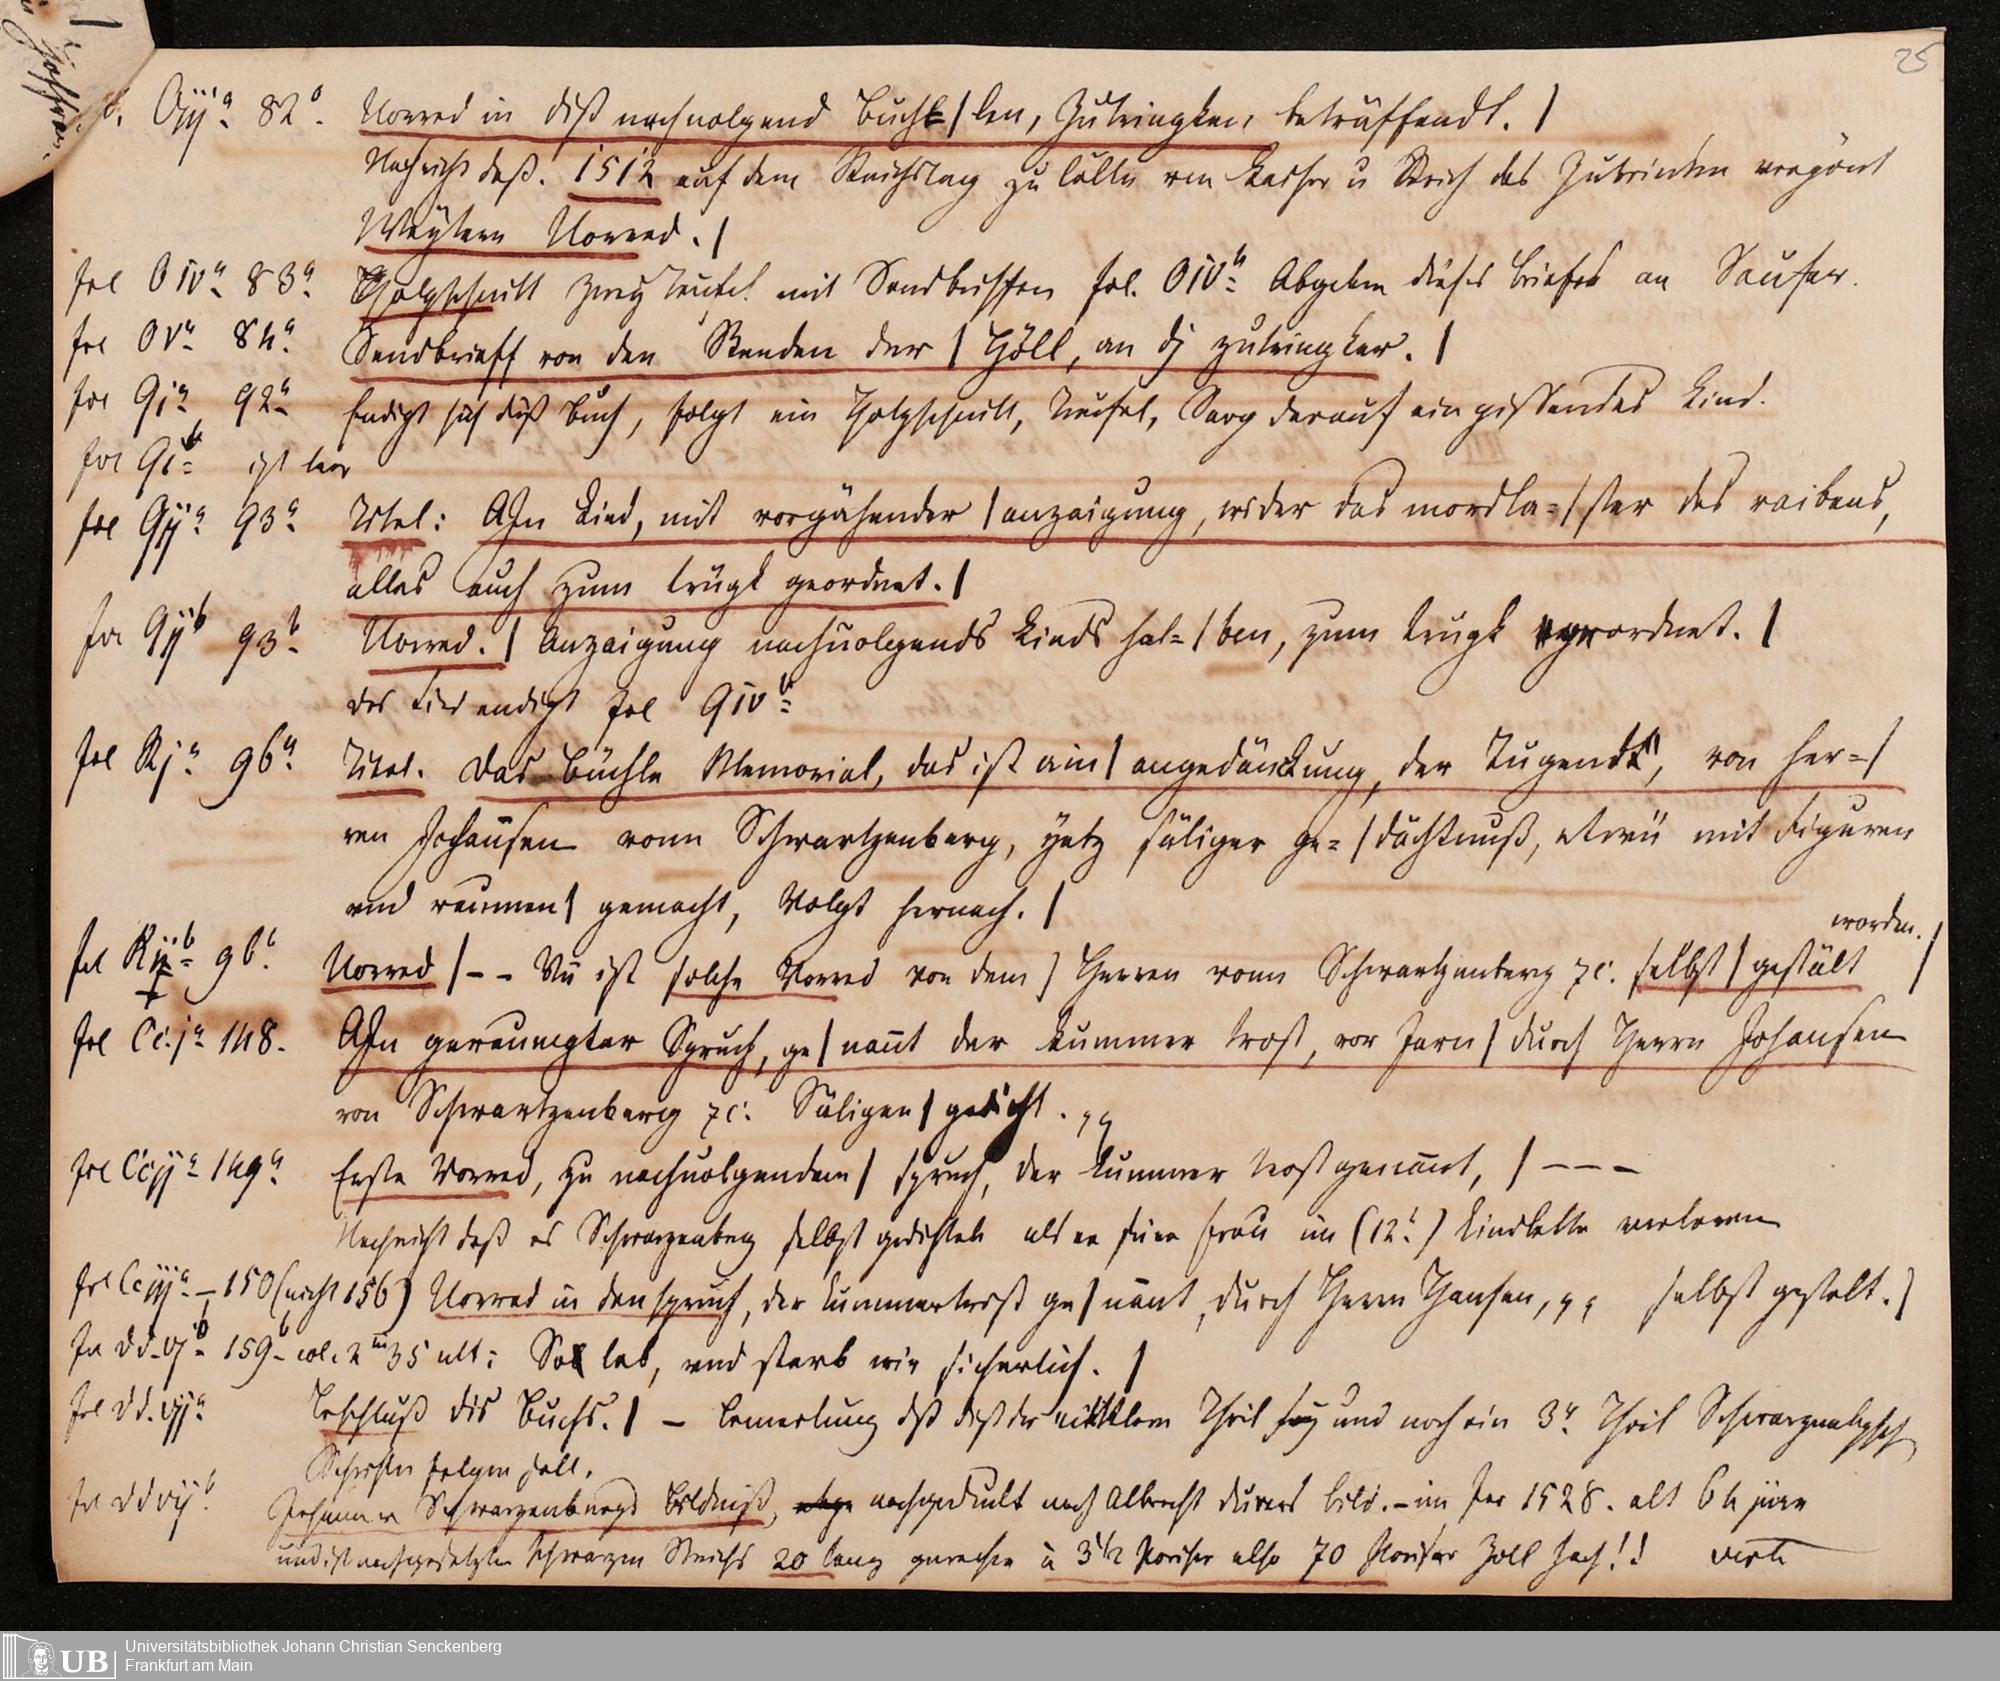 25
fol. Oijᵃ. 82ᵃ. Vorred in diß nachvolgend Buch/len, Zutringken beträffendt. /
Nachricht daß. 1512 auf dem Reichstag zu Cölln von Kaiser u Reich das Zutrinken
Weyters Vorred. /
fol Oivᵃ 83ᵃ. Holzschnitt zwey Teufel mit Sendbriffen fol. Oivᵃ Abgeben dieses Briefes an Saufer.
fol Ovᵃ 84ᵃ. Sendbrieff von den Stenden der / Höll, an dj zutringker. /
fol Qiᵃ 92ᵃ Endigt sich diß Buch, folgt ein Holzschnitt, Teufel, Sarg darauf ein Kind.
fol Qiᵇ ist leer
fol Qijᵃ 93ᵃ Titel: Ain Lied, mit vorgähender / anzaigung, wider das mordla=/ster des raubens,
alles auch zum trugk geordnet. /
fol Qijᵇ 93ᵇ Vorred. / Anzaigung nachvolgends Lieds hal=/ben, zum trugk geordnet. /
das Lied endigt fol Qivᵇ
fol Rjᵃ 96ᵃ Titel. Das Büchle Memorial, das ist ain / angedänckung, der Tugendt, von her=/
ren Johannsen vonn Schwartzenberg, yetz säliger ge=/dächtnuß, etwū mit Figuren
und reumen / gemacht, Volgt hernach. /
worden.
fol Rijᵇ 96ᵇ. Vorred / – – Nū ist solche Vorred von dem / Herren vonn Schwartzenberg ꝛc. selbst / gestält /
fol Cc.jᵃ 148. Ain gereumgter Spruch, ge/nant der kummer trost, vor Jarn / durch Herrn Johansen
von Schwartzenberg ꝛc: Säligen / gedicht.
fol Ccijᵃ 149ᵃ Erste Vorred, zu nachvolgendem / spruch, der kummer trost genannt, / – – –
Nachricht daß es Schwarzenberg selbst gedichtet als er seine Frau im (12ᵗ) Kindbette verloren
fol Cciijᵃ – 150 (nicht 156) Vorred in den spruch, der kummertrost ge/nant, durch Herrn Hansen, selbst gestelt. /
fol dd.vjᵇ 159ᵇ col. 2 lin 35 ult: So leb, und starb wir sicherlich. /
fol dd.vijᵃ Beschluß dis Buchs. / – Bemerkung daß dieß der mittlere Theil sey und noch ein 3ʳ Theil
Schriften folgen soll.
fol ddvijᵇ Johannes Schwarzenbergs Bildniß, nachgedruckt nach Albrecht Durers Bild. – im Jar 1528. alt 64 jare
und ist schwarzen Strichs 20 lang à 3½ Pariser also 70 Pariser Zoll hoch!! verte
UB
Universitätsbibliothek Johann Christian Senckenberg
Frankfurt am Main